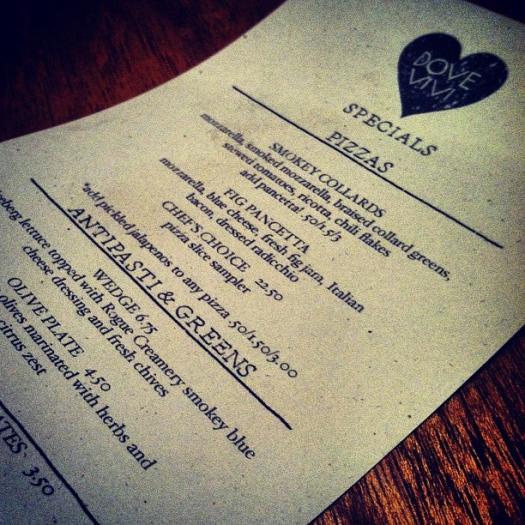 DOVE
VIVI
SPECIALS
PIZZAS
SMOKEY COLLARDS
mozzarella, smoked mozzarella, braised collard greens,
stewed tomatoes, ricotta, chili flakes
add pancetta .50/1.5/3
FIG PANCETTA
mozzarella, blue cheese, fresh fig jam, Italian
bacon, dressed radicchio
CHEF'S CHOICE 22.50
pizza slice sampler
*add pickled jalapenos to any pizza .50/1.50/3.00
ANTIPASTI & GREENS
WEDGE 6.75
iceberg lettuce topped with Rogue Creamery smokey blue
cheese dressing and fresh chives
OLIVE PLATE 4.50
olives marinated with herbs and
citrus zest
3.50